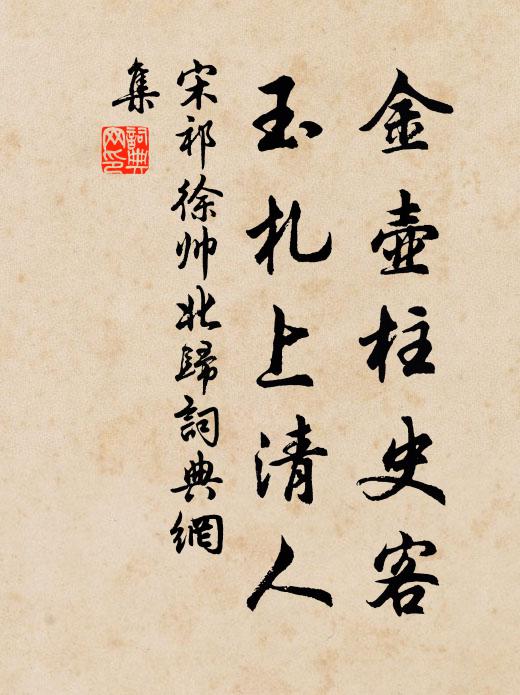 金壺柱史客
玉札上清人
宋祁徐帅北歸詞典網
集
詞典網印